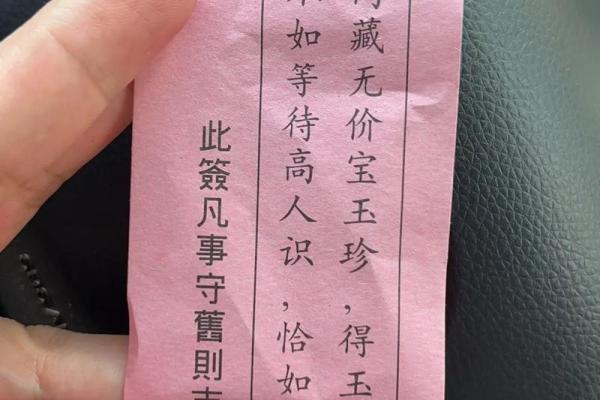 藏无价宝玉珍,得玉
如等待高人识,恰如
此簽凡事守舊則